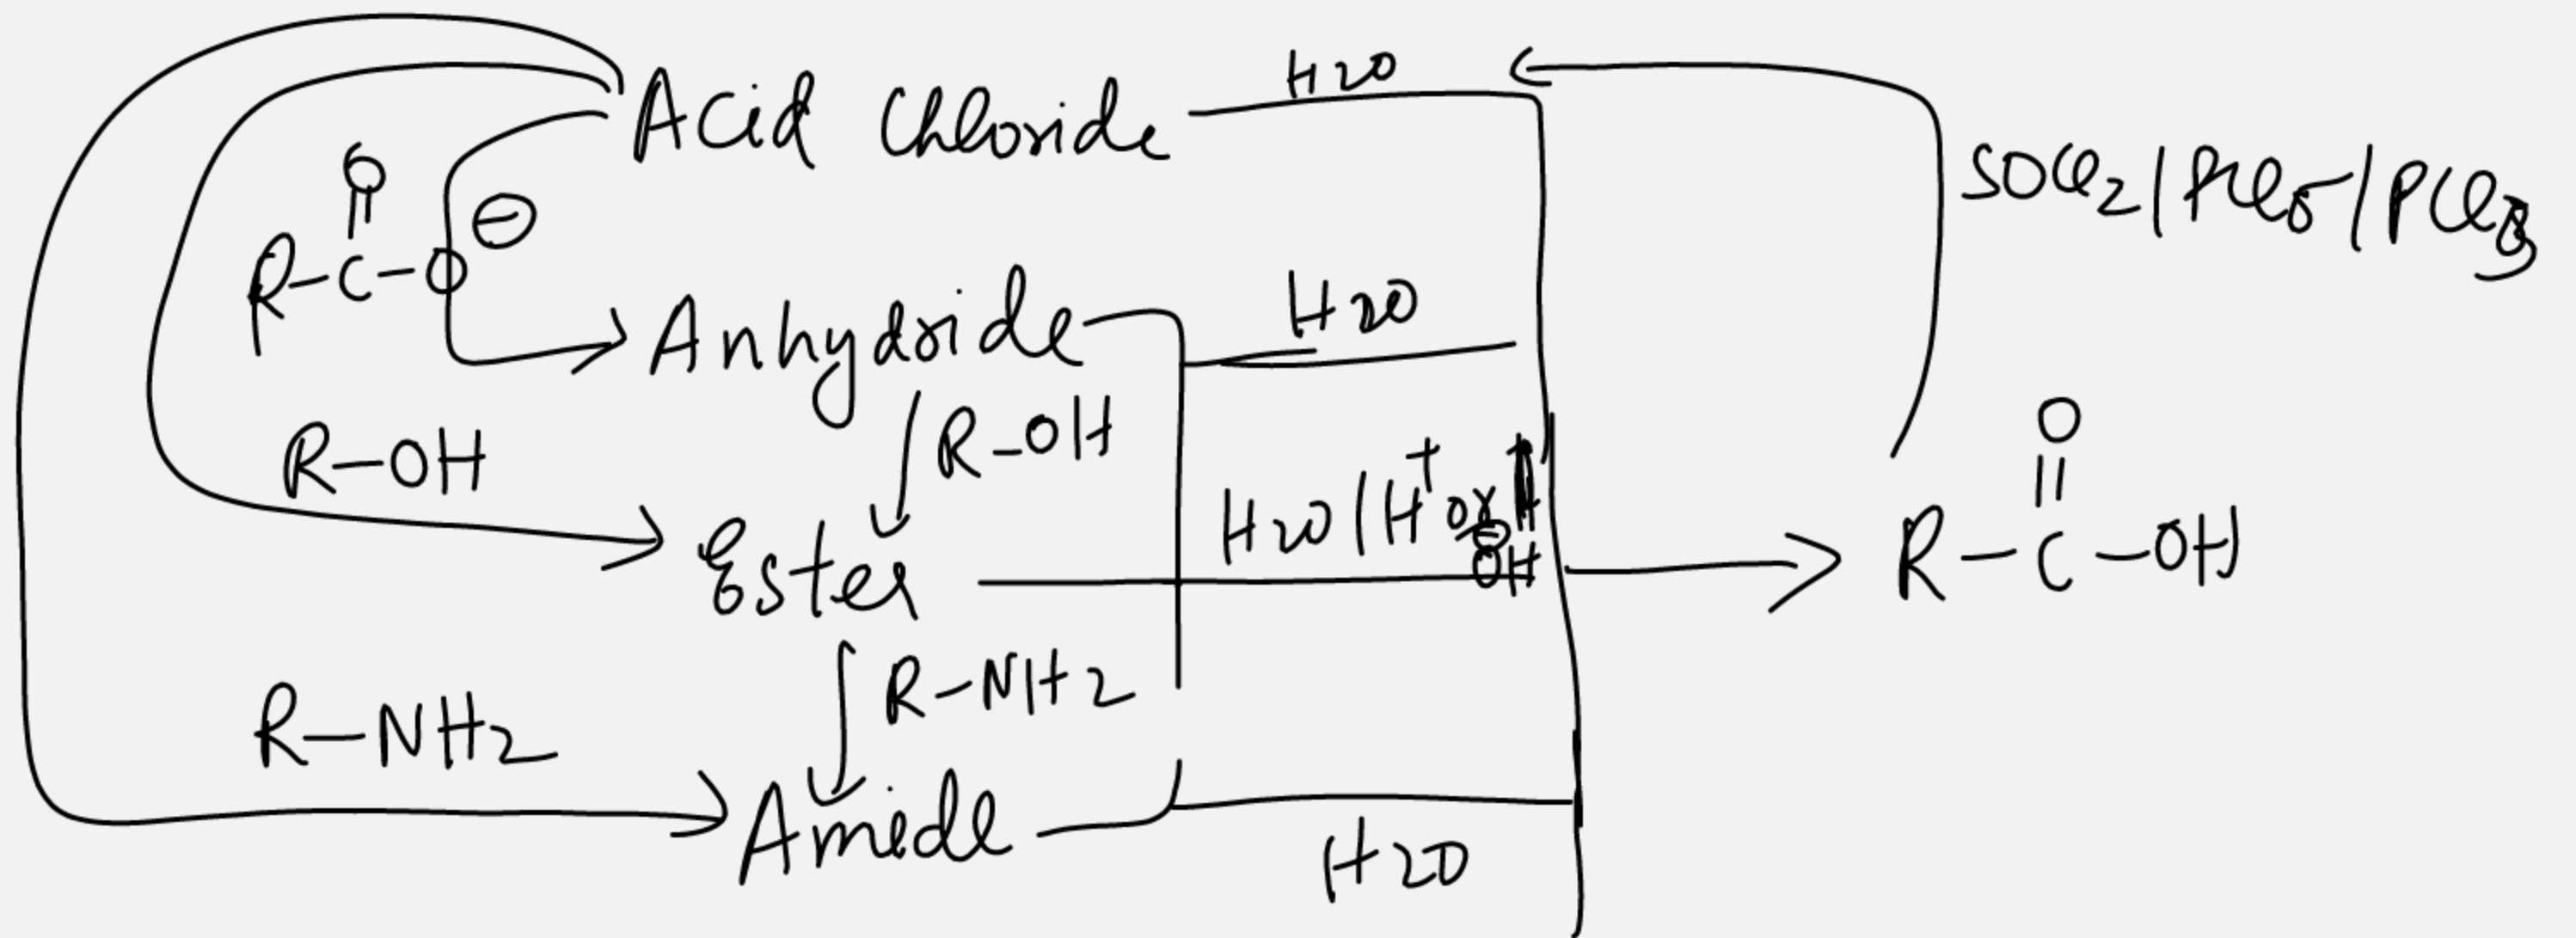 Acid Chloride
H2O
SOCl2/PCl5/PCl3
O
R-C-O
⊖
Anhydride
H2O
R-OH
R-OH
Ester
H2O/H+ or
⊖
OH
O
R-C-OH
R-NH2
R-NH2
Amide
H2O